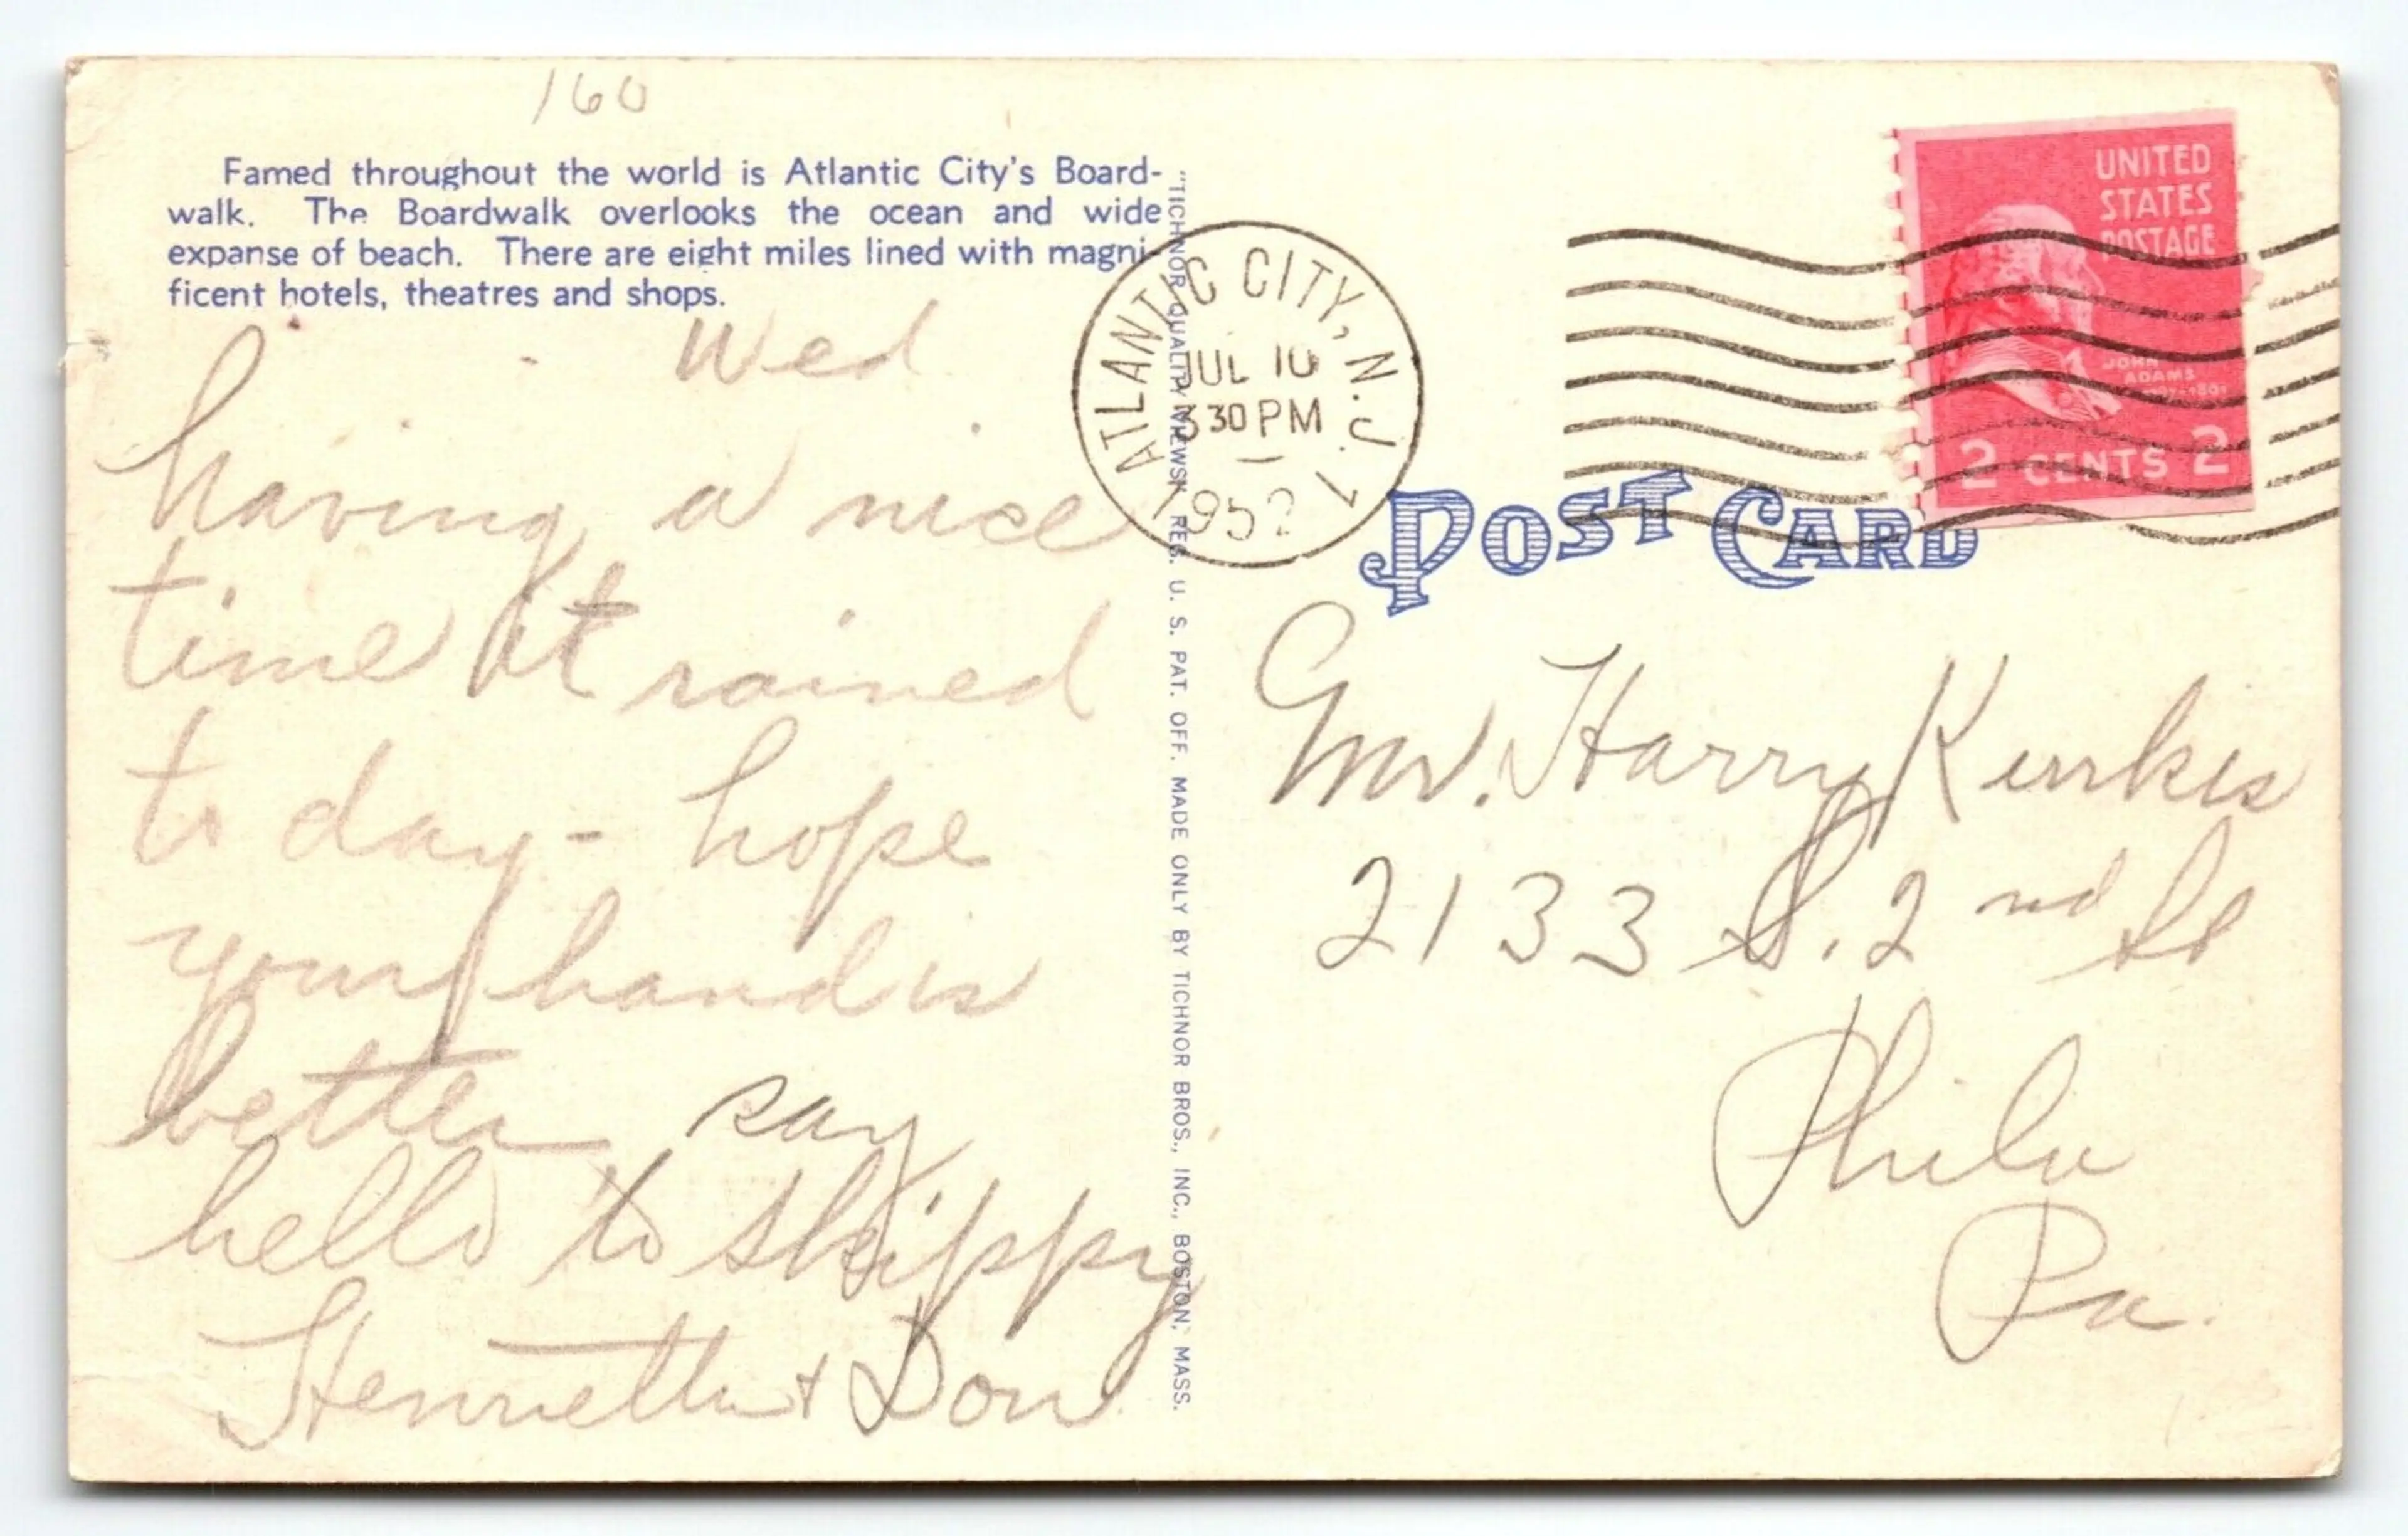 160
Famed throughout the world is Atlantic City's Board-
walk. The Boardwalk overlooks the ocean and wide
expanse of beach. There are eight miles lined with magni-
ficent hotels, theatres and shops.
Wed
having a nice
time it rained
to day - hope
your hand is
better say
hello to Skippy
Henrietta + Don
"TICHNOR QUALITY VIEWS," REG. U. S. PAT. OFF. MADE ONLY BY TICHNOR BROS., INC., BOSTON, MASS.
ATLANTIC CITY, N.J. 1
JUL 10
30 PM
1952
UNITED
STATES
POSTAGE
JOHN
ADAMS
2 CENTS 2
POST CARD
Mr. Harry
2133 S. 2nd St
Phila
Pa.